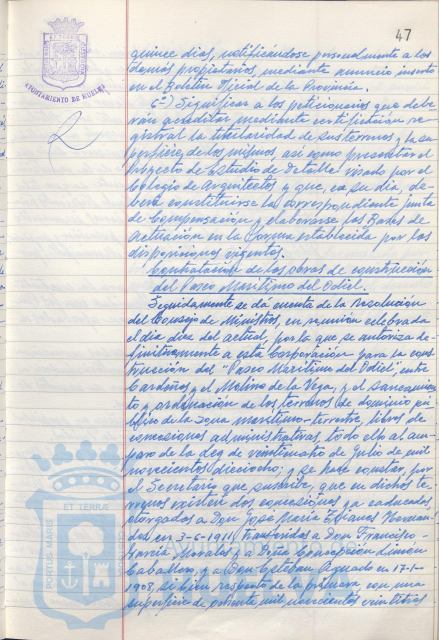 47
AYUNTAMIENTO DE HUELVA
quince dias, notificándose personalmente a los
demás propietarios, mediante anuncio inserto
en el Boletín Oficial de la Provincia.
6º) Significar a los peticionarios que debe
rán acreditar mediante certificación re
gistral la titularidad de sus terrenos y la su
perficie de los mismos, así como presentar el
Proyecto de Estudio de Detalle visado por el
Colegio de Arquitectos y que, en su día, de-
berá constituirse la correspondiente Junta
de Compensación y elaborarse las Bases de
Actuación en la forma establecida por las
disposiciones vigentes.
Contratación de las obras de construcción
del Paseo Marítimo del Odiel.
Seguidamente se dá cuenta de la resolución
del Consejo de Ministros, en reunión celebrada
el día diez del actual, por la que se autoriza de-
finitivamente a esta Corporación para la cons-
trucción del "Paseo Marítimo del Odiel, entre
Cardeñas y el Molino de la Vega, y el saneamien
to y ordenación de los terrenos de dominio pú-
blico de la zona marítimo-terrestre, libres de
concesiones administrativas, todo ello al am-
paro de la Ley de veinticuatro de Julio de mil
novecientos dieciocho; y se hace constar, por
el Secretario que suscribe, que en dichos te-
rrenos existen dos concesiones ya caducadas,
otorgadas a Don José María
en 3-6-1911, transferidas a Don Francisco
García Morales y a Doña Concepción Limón
Caballero, y a Don Esteban Aguado en 17-1-
1908, si bien respecto de la primera con una
superficie de mil novecientos
PORTUS MARIS
ET TERRAE